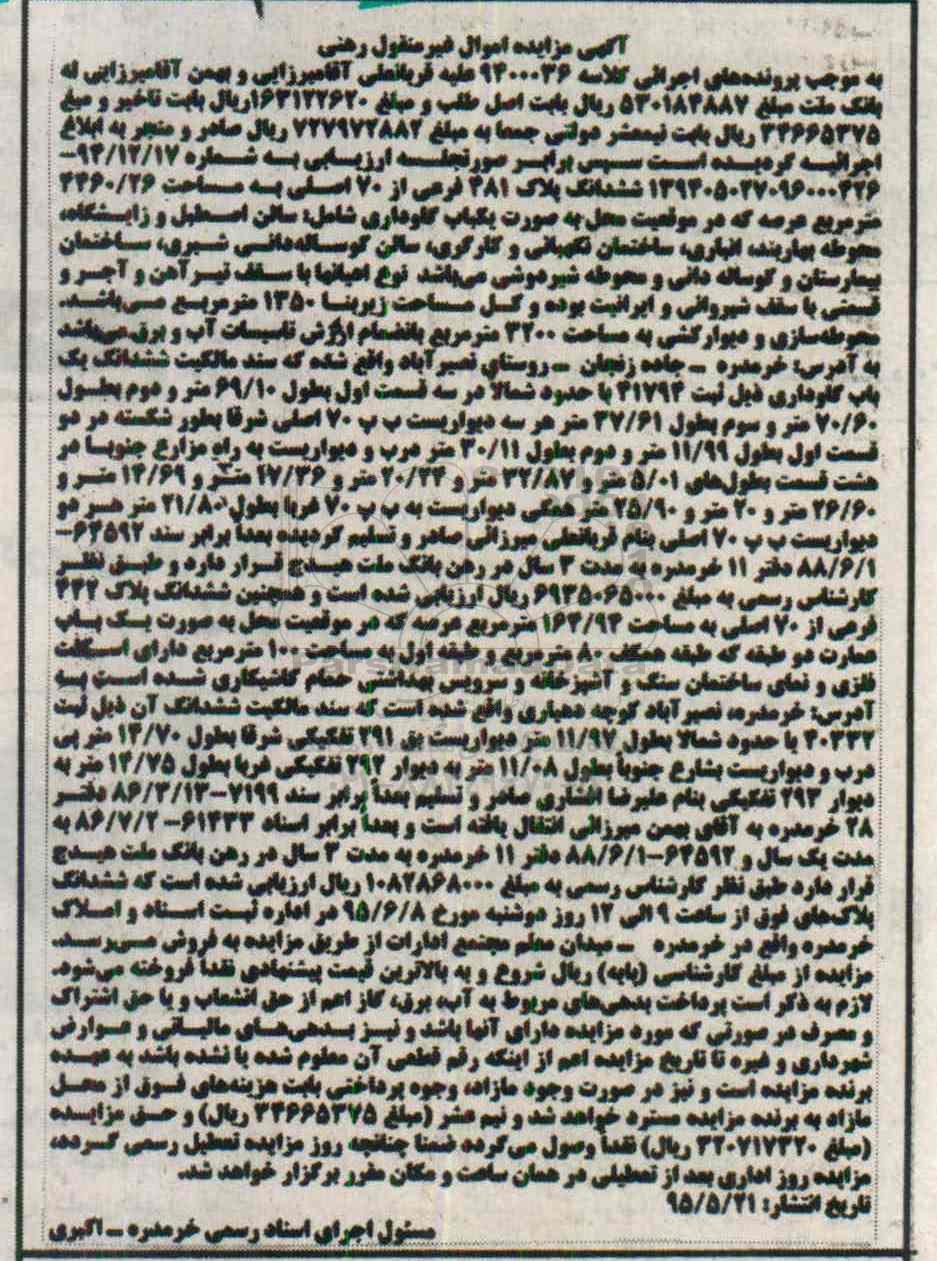 آگهی مزایده اموال غیرمنقول رهنی
به موجب پرونده‌های اجرائی کلاسه ۹۴۰۰۰۳۶ علیه قربانعلی آقامیرزایی و بهمن آقامیرزایی له
بانک ملت مبلغ ۵۳۰۱۸۴۸۸۷ ریال بابت اصل طلب و مبلغ ۱۶۳۱۲۲۶۲۰ریال بابت تاخیر و مبلغ
۳۴۶۶۵۳۷۵ ریال بابت نیمعشر دولتی جمعا به مبلغ ۷۲۷۹۷۲۸۸۲ ریال صادر و منجر به ابلاغ
اجرائیه گردیده است سپس برابر صورتجلسه ارزیابی به شماره ۹۴/۱۲/۱۷-
۱۳۹۴۰۵۰۲۷۰۹۶۰۰۰۴۲۶ ششدانگ پلاک ۴۸۱ فرعی از ۷۰ اصلی به مساحت ۴۴۶۰/۲۶
مترمربع عرصه که در موقعیت محل به صورت یکباب گاوداری شامل: سالن اصطبل و زایشگاه،
محوطه بهاربند، انباری، ساختمان نگهبانی و کارگری، سالن گوساله‌دانی شیری، ساختمان
بیمارستان و گوساله دانی و محوطه شیردوشی می‌باشد نوع اعیانها با سقف تیرآهن و آجر و
قسمتی با سقف شیروانی و ایرانیت بوده و کل مساحت زیربنا ۱۳۵۰ مترمربع می‌باشد.
محوطه‌سازی و دیوارکشی به مساحت ۳۲۰۰ مترمربع بانضمام ارزش تاسیسات آب و برق می‌باشد
به آدرس: خرمدره ــ جاده زنجان ــ روستای نصیرآباد واقع شده که سند مالکیت ششدانگ یک
باب گاوداری ذیل ثبت ۴۱۷۹۴ با حدود شمالا در سه قسمت اول بطول ۶۹/۱۰ متر و دوم بطول
۷۰/۶۰ متر و سوم بطول ۳۷/۶۱ متر هر سه دیواریست ب پ ۷۰ اصلی شرقا بطور شکسته در دو
قسمت اول بطول ۱۱/۹۹ متر و دوم بطول ۳۰/۱۱ متر درب و دیواریست به راه مزارع جنوبا در
هشت قسمت بطول‌های ۵/۰۱ متر و ۳۲/۸۷ متر و ۲۰/۲۴ متر و ۱۷/۳۶ متر و ۱۴/۶۹ متر و
۲۶/۶۰ متر و ۲۰ متر و ۲۵/۹۰ متر همگی دیواریست به ب پ ۷۰ غربا بطول ۲۱/۸۰ متر هر دو
دیواریست ب پ ۷۰ اصلی بنام قربانعلی میرزائی صادر و تسلیم گردیده بعداً برابر سند ۶۴۵۹۲-
۸۸/۶/۱ دفتر ۱۱ خرمدره به مدت ۳ سال در رهن بانک ملت هیدج قرار دارد و طبق نظر
کارشناس رسمی به مبلغ ۶۹۳۵۰۶۵۰۰۰ ریال ارزیابی شده است و همچنین ششدانگ پلاک ۴۴۲
فرعی از ۷۰ اصلی به مساحت ۱۶۴/۹۴ مترمربع عرصه که در موقعیت محل به صورت یک باب
عمارت دو طبقه که طبقه همکف ۸۰ مترمربع و طبقه اول به مساحت ۱۰۰ مترمربع دارای اسکلت
فلزی و نمای ساختمان سنگ و آشپزخانه و سرویس بهداشتی حمام کاشیکاری شده است به
آدرس: خرمدره، نصیرآباد کوچه دهیاری واقع شده است که سند مالکیت ششدانگ آن ذیل ثبت
۴۰۳۳۲ با حدود شمالا بطول ۱۱/۹۷ متر دیواریست بق ۲۹۱ تفکیکی شرقا بطول ۱۴/۷۰ متر پی
درب و دیواریست بشارع جنوباً بطول ۱۱/۰۸ متر به دیوار ۲۹۲ تفکیکی غربا بطول ۱۴/۷۵ متر به
دیوار ۲۹۳ تفکیکی بنام علیرضا افشاری صادر و تسلیم بعداً برابر سند ۷۱۹۹-۸۶/۳/۱۳ دفتر
۲۸ خرمدره به آقای بهمن میرزائی انتقال یافته است و بعداً برابر اسناد ۶۱۴۳۳-۸۶/۷/۲ به
مدت یک سال و ۶۴۵۹۲-۸۸/۶/۱ دفتر ۱۱ خرمدره به مدت ۳ سال در رهن بانک ملت هیدج
قرار دارد طبق نظر کارشناس رسمی به مبلغ ۱۰۸۲۸۶۸۰۰۰ ریال ارزیابی شده است که ششدانگ
پلاک‌های فوق از ساعت ۹ الی ۱۲ روز دوشنبه مورخ ۹۵/۶/۸ در اداره ثبت اسناد و املاک
خرمدره واقع در خرمدره ــ میدان معلم مجتمع ادارات از طریق مزایده به فروش می‌رسد.
مزایده از مبلغ کارشناسی (پایه) ریال شروع و به بالاترین قیمت پیشنهادی نقداً فروخته می‌شود.
لازم به ذکر است پرداخت بدهی‌های مربوط به آب، برق، گاز اعم از حق انشعاب و یا حق اشتراک
و مصرف در صورتی که مورد مزایده دارای آنها باشد و نیز بدهی‌های مالیاتی و عوارض
شهرداری و غیره تا تاریخ مزایده اعم از اینکه رقم قطعی آن معلوم شده یا نشده باشد به عهده
برنده مزایده است و نیز در صورت وجود مازاد، وجوه پرداختی بابت هزینه‌های فوق از محل
مازاد به برنده مزایده مسترد خواهد شد و نیم عشر (مبلغ ۳۴۶۶۵۳۷۵ ریال) و حق مزایده
(مبلغ ۳۲۰۷۱۷۳۲۰ ریال) نقداً وصول می‌گردد ضمنا چنانچه روز مزایده تعطیل رسمی گردد،
مزایده روز اداری بعد از تعطیلی در همان ساعت و مکان مقرر برگزار خواهد شد.
تاریخ انتشار: ۹۵/۵/۲۱
مسئول اجرای اسناد رسمی خرمدره ــ اکبری